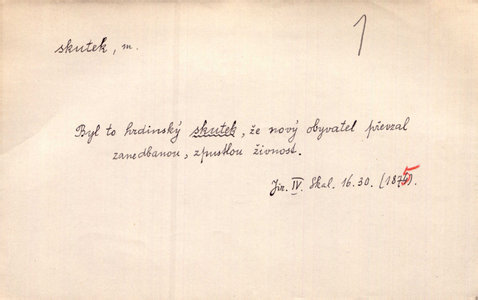 1
skutek, m.
Byl to hrdinský skutek, že nový obyvatel převzal
zanedbanou, zpustlou živnost.
Jir. IV. Skal. 16.30. (1875).